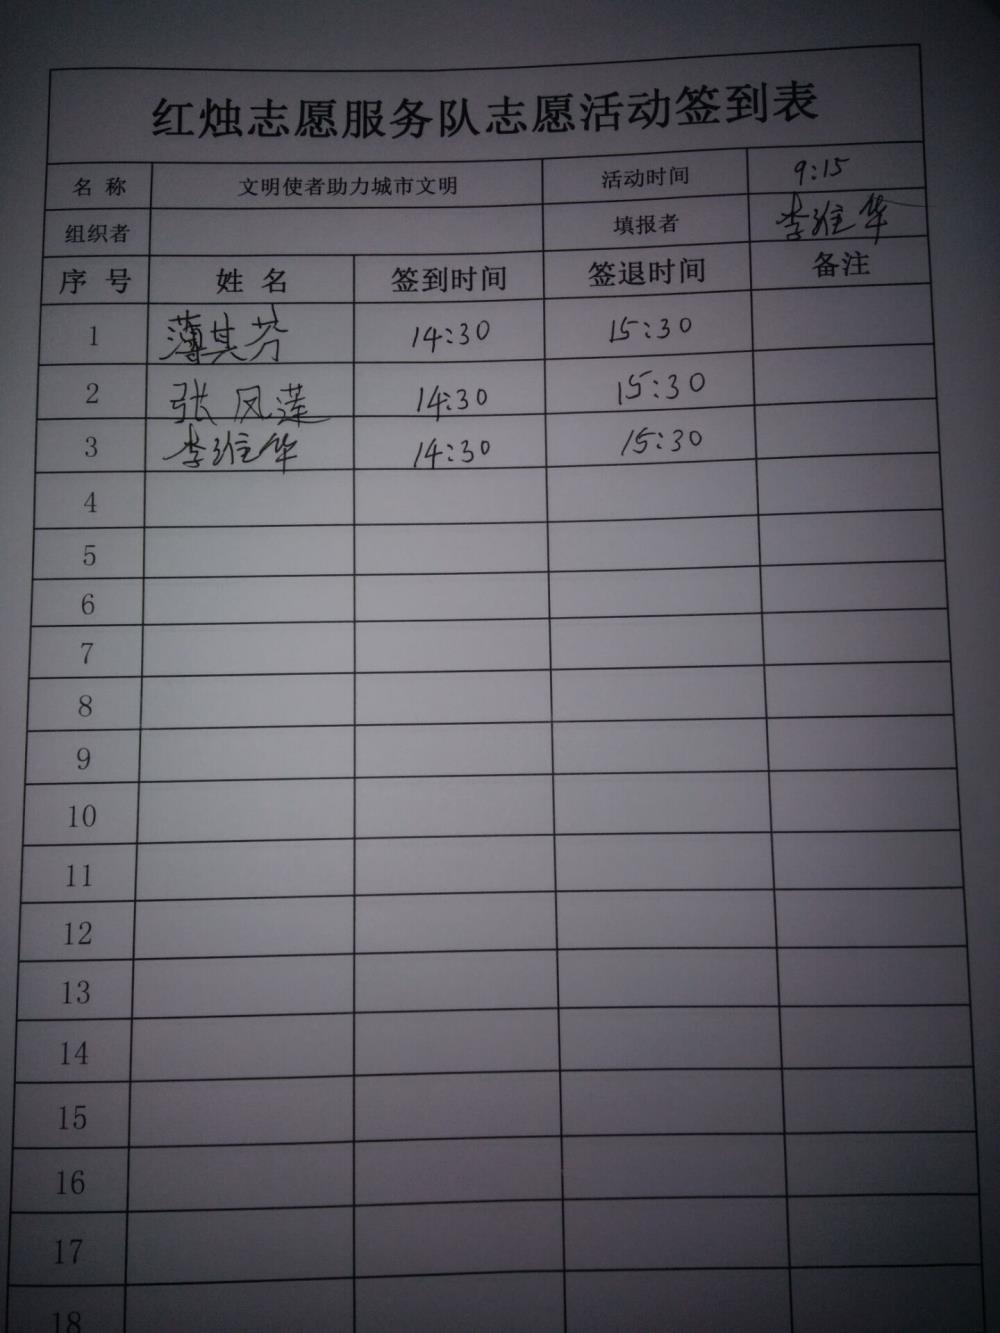 红烛志愿服务队志愿活动签到表
名 称 文明使者助力城市文明 活动时间 9:15
组织者 填报者 李维华
序 号 姓 名 签到时间 签退时间 备注
1 薄其芬 14:30 15:30
2 张凤莲 14:30 15:30
3 李维华 14:30 15:30
4
5
6
7
8
9
10
11
12
13
14
15
16
17
18